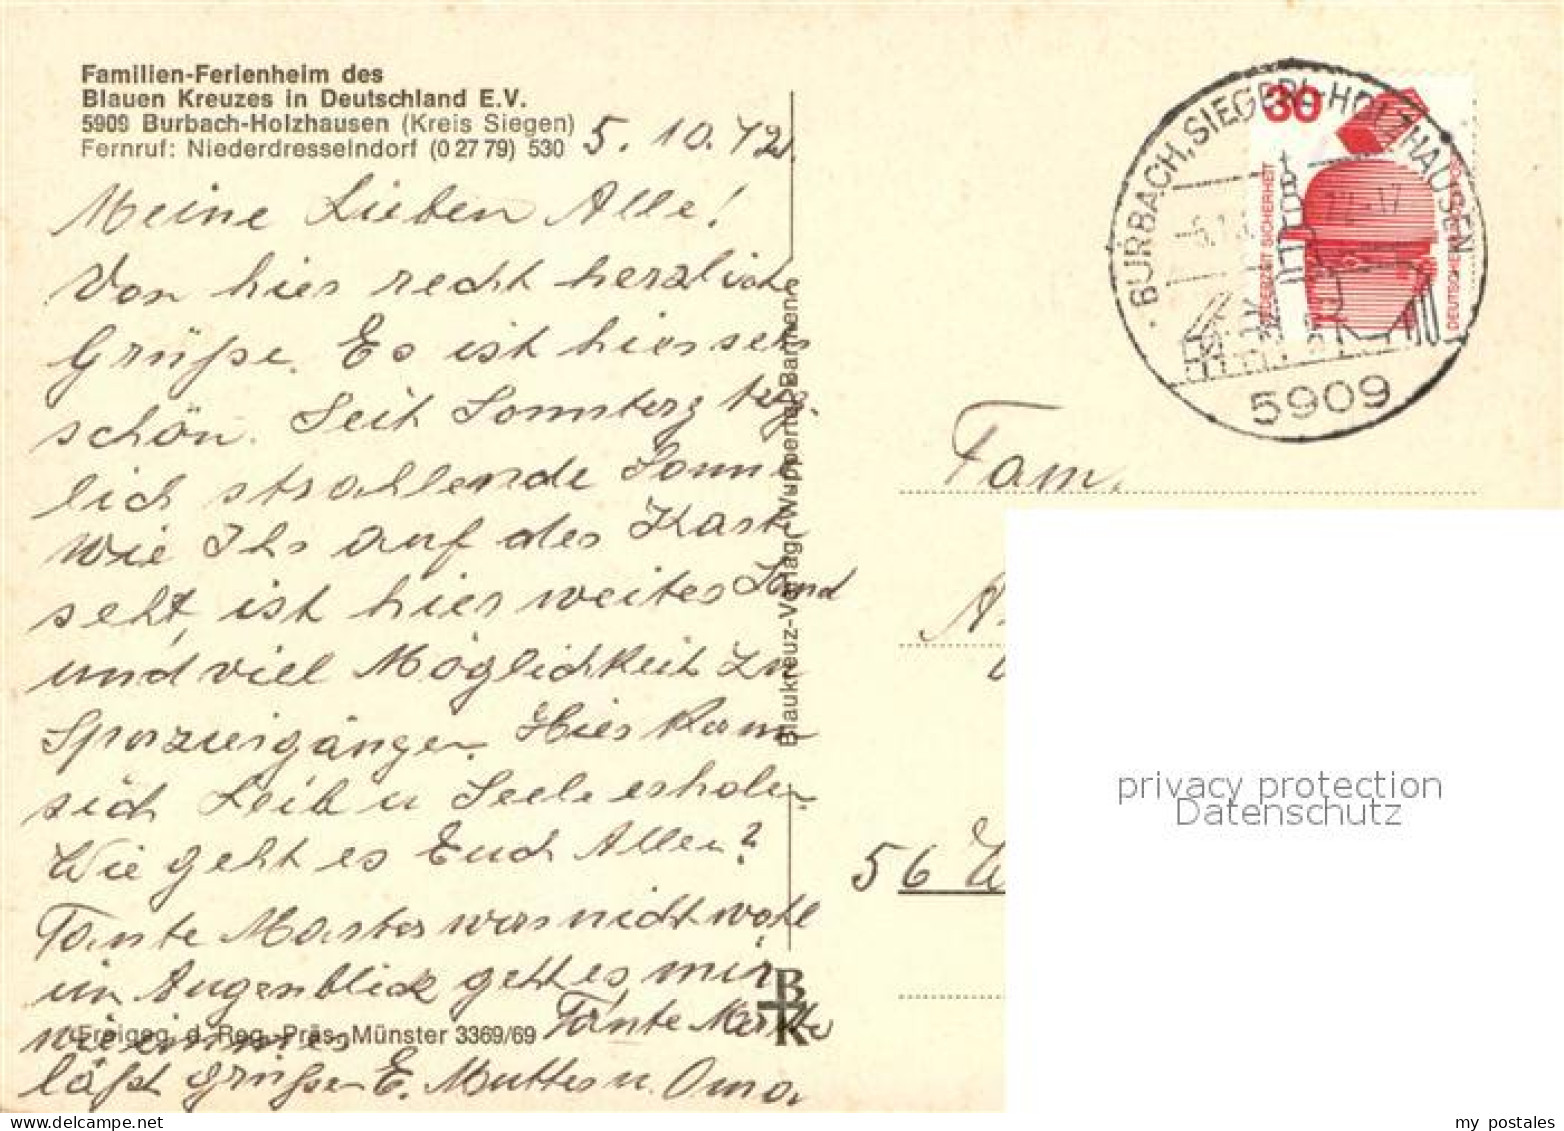 Familien-Ferienheim des
Blauen Kreuzes in Deutschland E.V.
5909 Burbach-Holzhausen (Kreis Siegen)
Fernruf: Niederdresselndorf (0 27 79) 530
5. 10. 72
Meine Lieben Alle!
Von hier recht herzliche
Grüße. Es ist hier sehr
schön. Seit Sonntag täg-
lich strahlende Sonne
wie Ihr auf der Karte
seht, ist hier weites Land
und viel Möglichkeit zu
Spaziergängen. Hier kann
sich Leib u Seele erholen.
Wie geht es Euch Allen?
Tante Marta war nicht wohl
im Augenblick geht es mir
wie immer Tante Marta
läßt grüßen E. Mutter u. Oma.
Freigeg. d. Reg.-Präs. Münster 3369/69
Blaukreuz-Verlag, Wuppertal-Barmen
B
K
30
JEDERZEIT SICHERHEIT
DEUTSCHE BUNDESPOST
BURBACH, SIEGERL-HOLZHAUSEN
5909
Fam.
56 W
privacy protection
Datenschutz
my postales